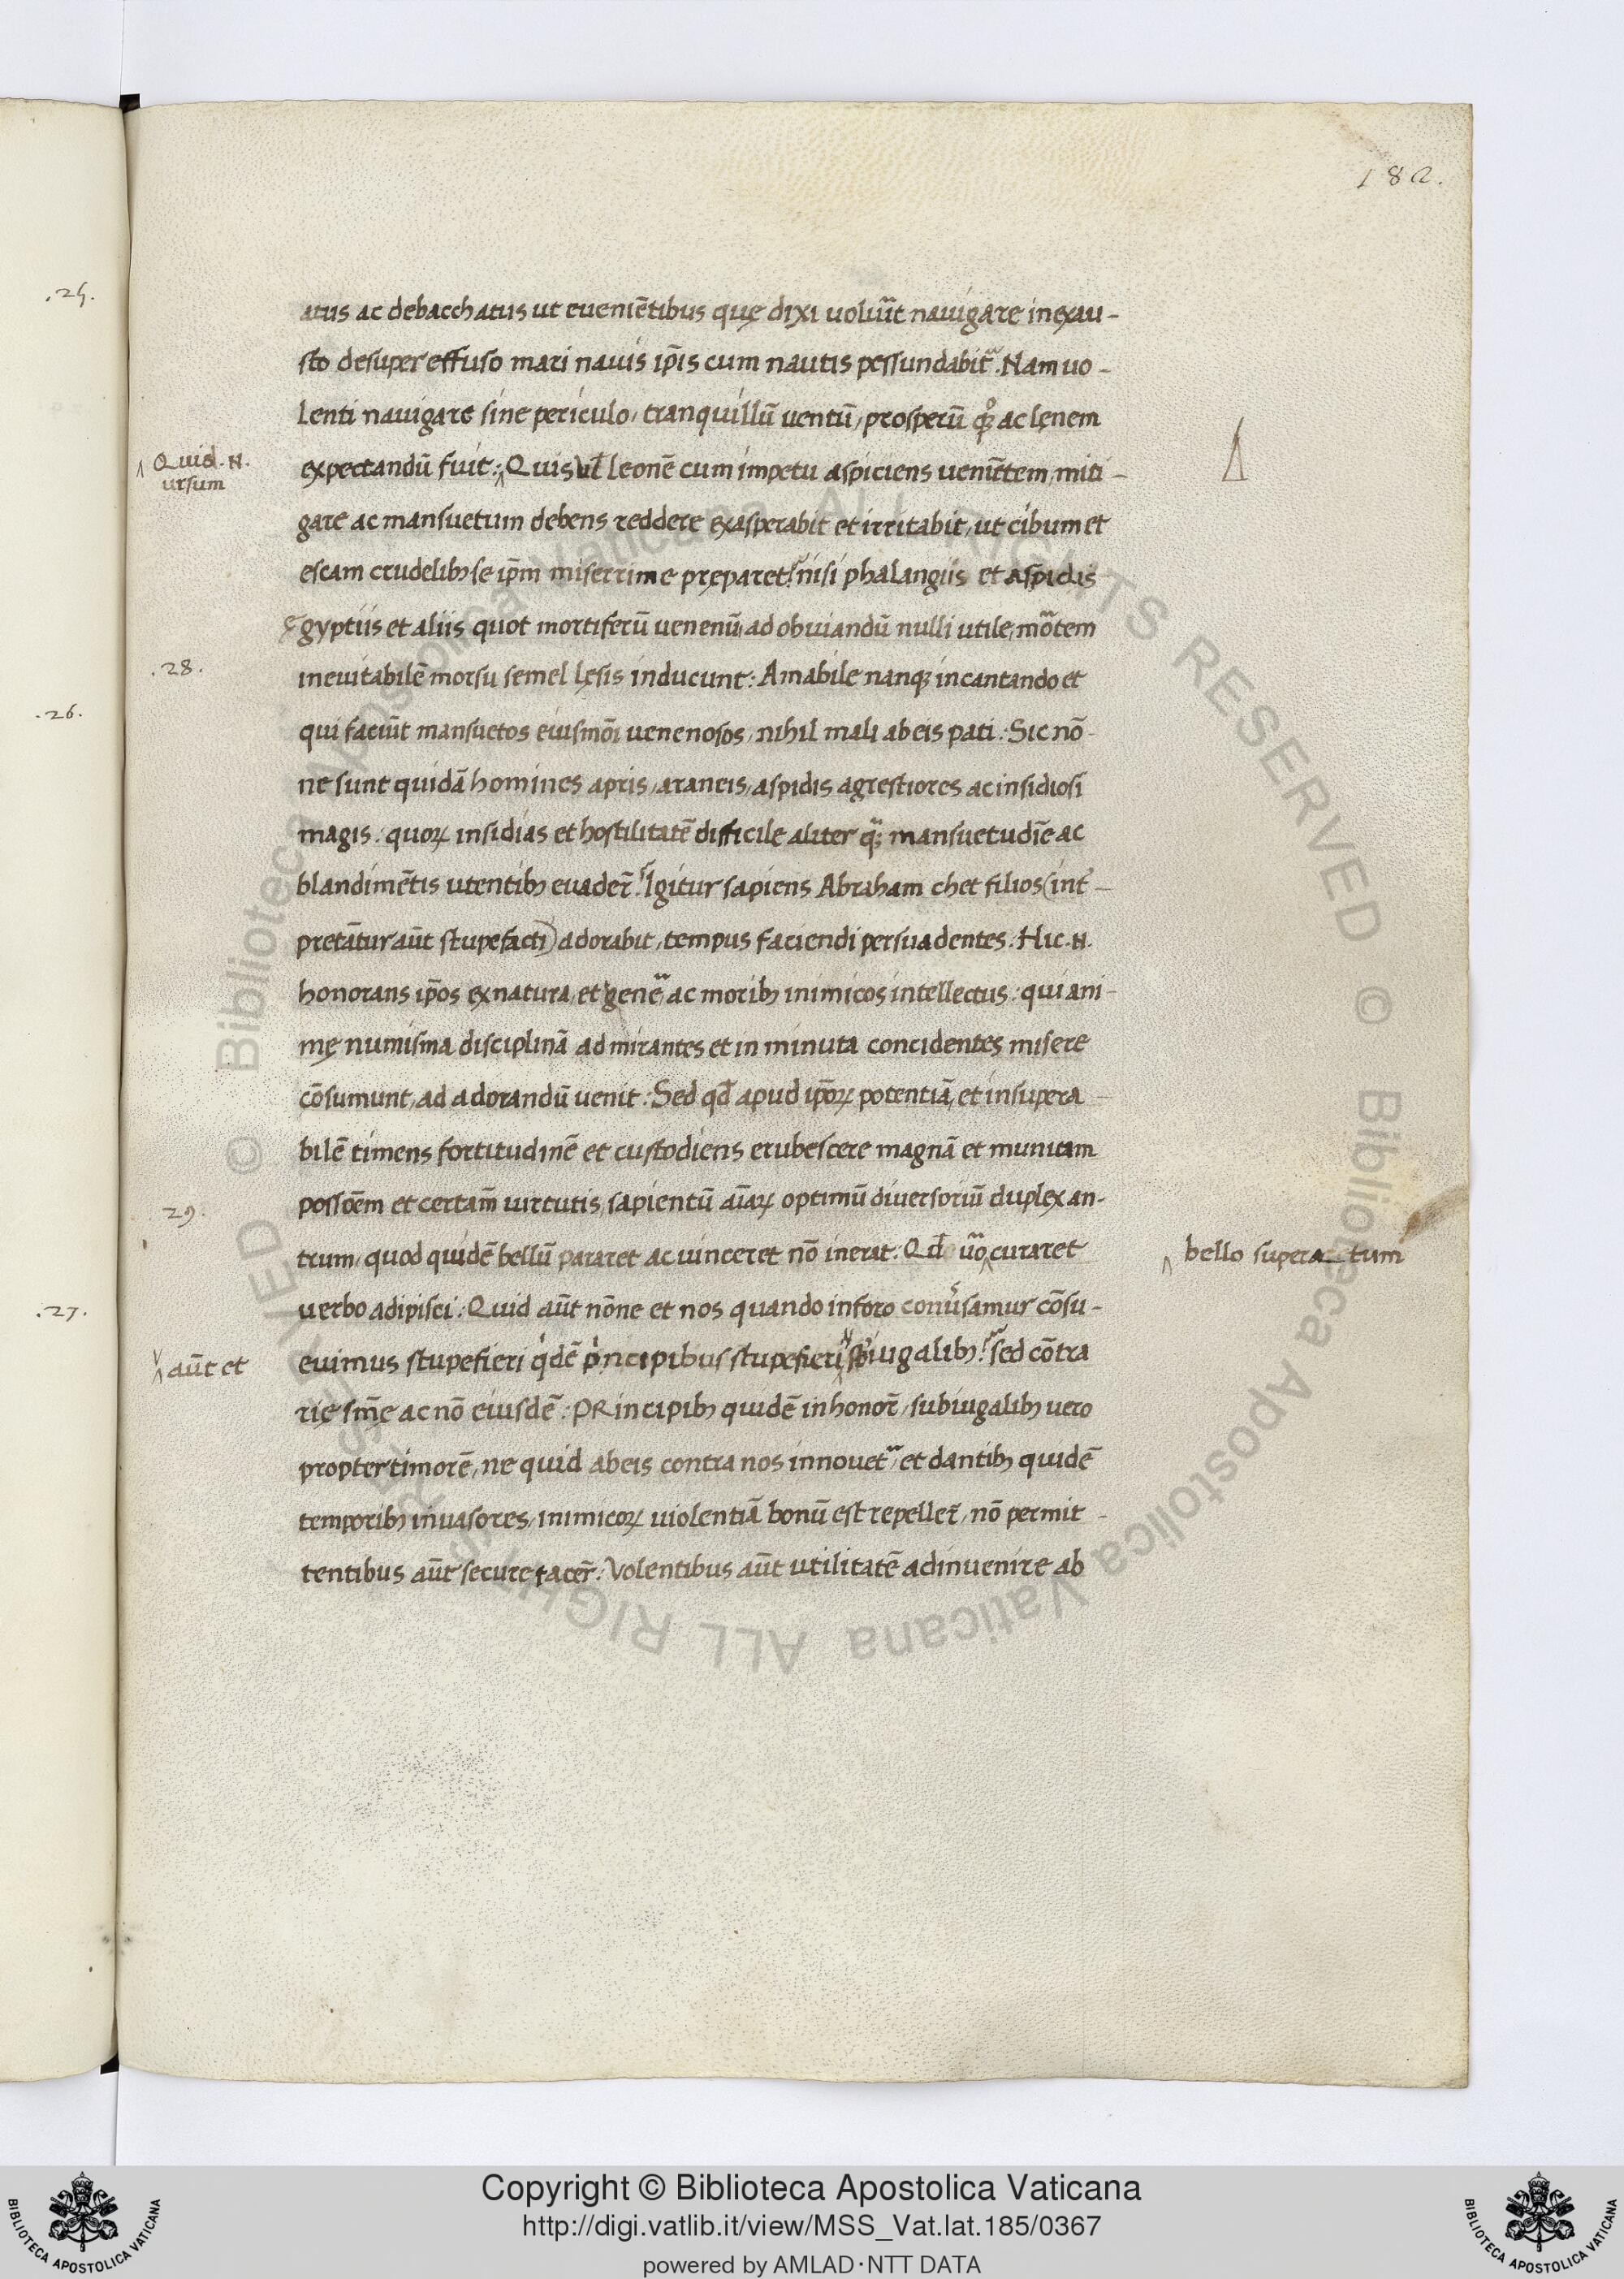 182.
.25.
.26.
.27.
atus ac debacchatus ut eueniētibus quę dixi uolūt nauigare inexau-
sto desuper effuso mari nauis ip̄is cum nautis pessundabit᷑. Nam uo-
lenti nauigare sine periculo, tranquillū uentū, prosperū ꝙ ac lęnem
Quid .N.
ursum
expectandū fuit: Quis ul̄ leonē cum impetu aspiciens uenītem, miti-
gare ac mansuetum debens reddere exasperabit et irritabit, ut cibum et
escam crudelibꝫ se ip̄m miserrime pręparet? nisi phalangiis et aspidis
ęgyptiis et aliis quot mortiferū uenenū, ad obuiandū nulli utile, mōtem
.28.
ineuitabilē morsu semel lęsis inducunt: Amabile nanqꝫ incantando et
qui faciūt mansuetos eiusmōi uenenosos, nihil mali ab eis pati: Sic nō-
ne sunt quidā homines apris, araneis, aspidis agrestiores ac insidiosi
magis: quoꝝ insidias et hostilitatē difficile aliter q̄ꝫ mansuetudīe ac
blandimētis utentibꝫ euader̄? Igitur sapiens Abraham chet filios (int̄-
pretātur aūt stupefacti) adorabit, tempus faciendi persuadentes: Hic .N.
honorans ip̄os ex natura, et gene᷑, ac moribꝫ inimicos intellectus: qui ani-
mę numisma disciplinā admirantes et in minuta concidentes misere
cōsumunt, ad adorandū uenit: Sed qd̄ apud ip̄oꝝ potentiā, et insupera-
bilē timens fortitudinē et custodiens erubescere magnā et munitam
29.
possōem et certam̄ uirtutis, sapientū aīaꝝ optimū diuersoriū duplex an-
trum, quod quidē bellū pararet ac uinceret nō inerat: Qd̄ uo᷑ curaret
bello superatum
uerbo adipisci: Quid aūt nōne et nos quando in foro conūsamur cōsu-
aūt et
euimus stupefieri qͥdē pͥncipibus stupefieri subiugalibꝫ? sed cōtra
rię sm̄ę ac nō eiusdē: PRincipibꝫ quidē in honor̄, subiugalibꝫ uero
propter timorē, ne quid ab eis contra nos innouet᷑, et dantibꝫ quidē
temporibꝫ inuasores, inimicoꝝ uiolentiā bonū est repeller̄, nō permit-
tentibus aūt secure tacer̄: Volentibus aūt utilitatē adinuenire ab
BIBLIOTECA APOSTOLICA VATICANA
Copyright © Biblioteca Apostolica Vaticana
http://digi.vatlib.it/view/MSS_Vat.lat.185/0367
powered by AMLAD·NTT DATA
BIBLIOTECA APOSTOLICA VATICANA
© Biblioteca Apostolica Vaticana ALL RIGHTS RESERVED © Biblioteca Apostolica Vaticana ALL RIGHTS RESERVED